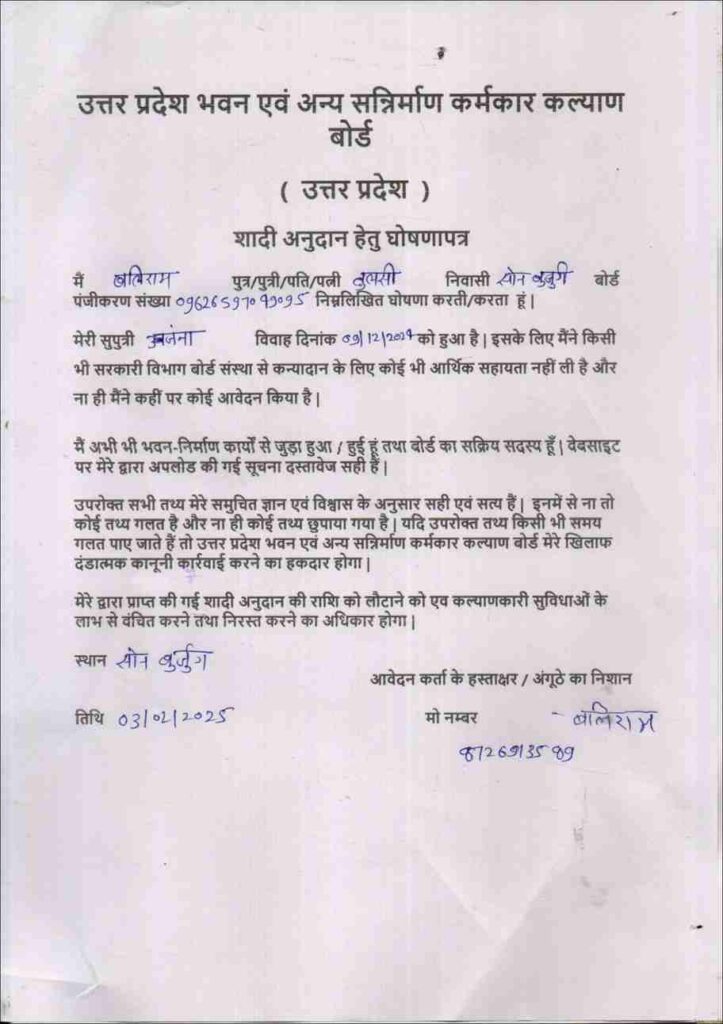 उत्तर प्रदेश भवन एवं अन्य सन्निर्माण कर्मकार कल्याण
बोर्ड
( उत्तर प्रदेश )
शादी अनुदान हेतु घोषणापत्र
मैं बलिराम पुत्र/पुत्री/पति/पत्नी तुलसी निवासी सोन बुजुर्ग बोर्ड
पंजीकरण संख्या निम्नलिखित घोषणा करती/करता हूं |
मेरी सुपुत्री विवाह दिनांक को हुआ है | इसके लिए मैंने किसी
भी सरकारी विभाग बोर्ड संस्था से कन्यादान के लिए कोई भी आर्थिक सहायता नहीं ली है और
ना ही मैंने कहीं पर कोई आवेदन किया है |
मैं अभी भी भवन-निर्माण कार्यो से जुड़ा हुआ / हुई हूं तथा बोर्ड का सक्रिय सदस्य हूँ | वेबसाइट
पर मेरे द्वारा अपलोड की गई सूचना दस्तावेज सही हैं |
उपरोक्त सभी तथ्य मेरे समुचित ज्ञान एवं विश्वास के अनुसार सही एवं सत्य हैं | इनमें से ना तो
कोई तथ्य गलत है और ना ही कोई तथ्य छुपाया गया है | यदि उपरोक्त तथ्य किसी भी समय
गलत पाए जाते हैं तो उत्तर प्रदेश भवन एवं अन्य सन्निर्माण कर्मकार कल्याण बोर्ड मेरे खिलाफ
दंडात्मक कानूनी कार्रवाई करने का हकदार होगा |
मेरे द्वारा प्राप्त की गई शादी अनुदान की राशि को लौटाने को एव कल्याणकारी सुविधाओं के
लाभ से वंचित करने तथा निरस्त करने का अधिकार होगा |
स्थान सोन बुर्जुग
आवेदन कर्ता के हस्ताक्षर / अंगूठे का निशान
तिथि 03/02/2025 मो नम्बर बलिराम
8726913589